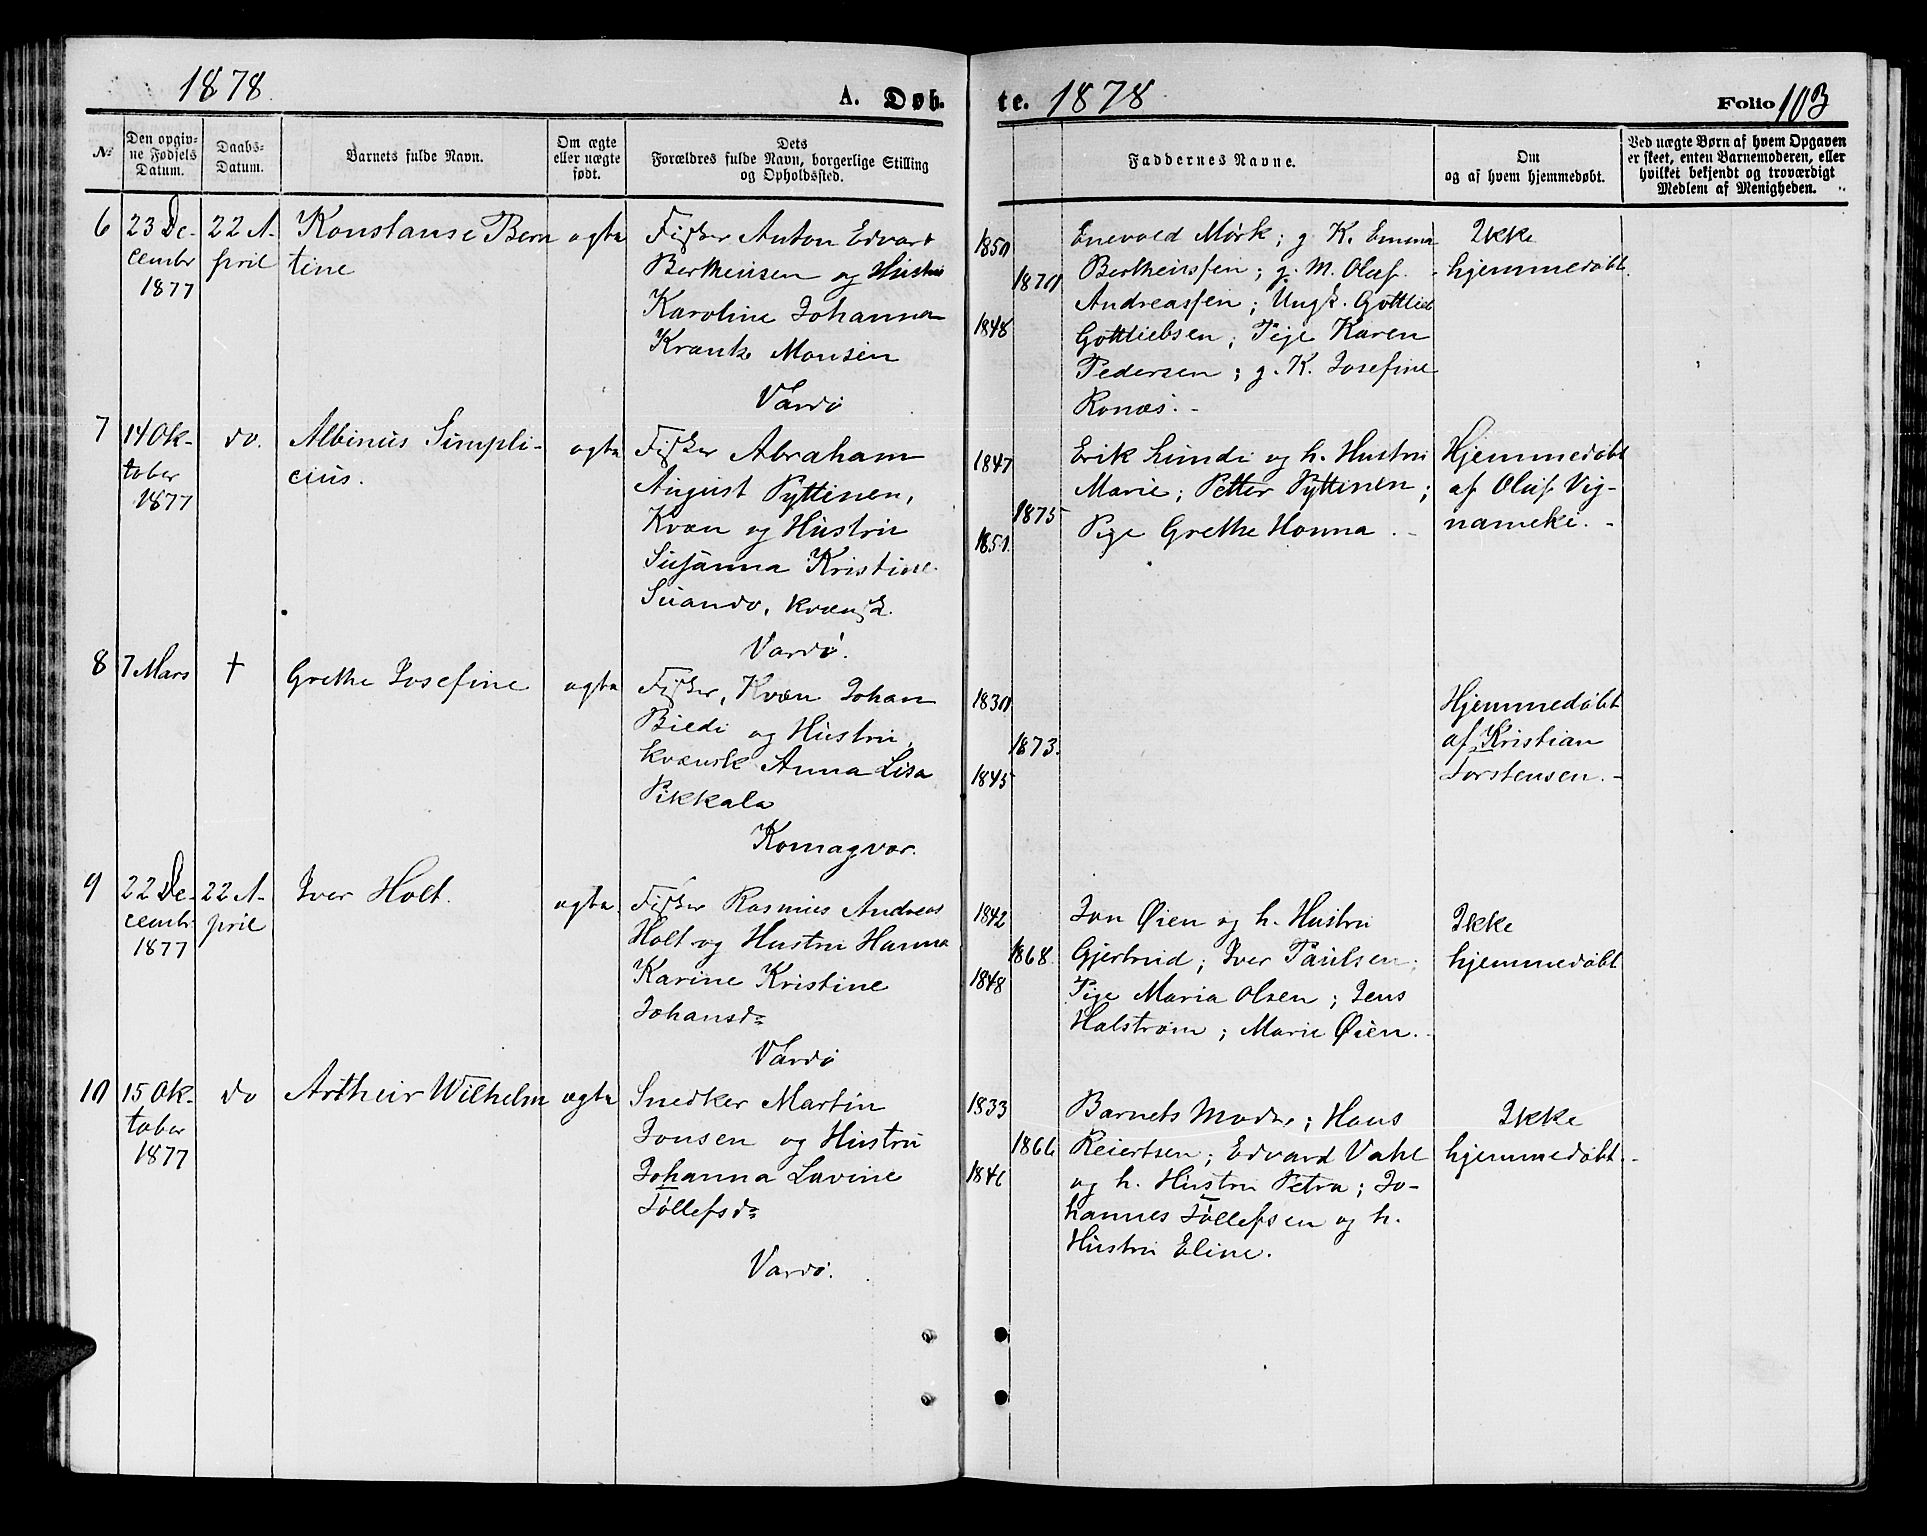 1878.
A. Døb-
te. 1878
Folio 103
№
Den opgiv-
ne Fødsels
Datum.
Daabs-
Datum.
Barnets fulde Navn.
Om ægte
eller uægte
født.
Dets
Forældres fulde Navn, borgerlige Stilling
og Opholdssted.
Faddernes Navne.
Om
og af hvem hjemmedøbt.
Ved uægte Børn af hvem Opgaven
er skeet, enten Barnemoderen, eller
hvilket bekjendt og troværdigt
Medlem af Menigheden.
6
23 De-
cembr
1877
22 A-
pril
Konstanse Bern
tine
ægte
Fisker Anton Edvart
Berthinsen og Hustru
Karoline Johanna
Krantz Monsen
Vardö
1850
1870
1848
Enevold Mørk; g. K. Emma
Berthinsen; g. M. Oluf
Andreassen; Ungk. Gottlieb
Gottliebsen; Pige Karen
Pedersen; g. K. Josefine
Ronæs. -
Ikke
hjemmedøbt.
7
14 Ok-
tober
1877
do.
Albinus Simpli-
cius.
ægte
Fisker Abraham
August Pyttinen,
Kvæn og Hustru
Susanna Kristine
Suando, kvænsk.
Vardö.
1847
1875
1850.
Erik Lundi og h. Hustru
Marie; Petter Pyttinen;
Pige Grethe Honna. -
Hjemmedøbt
af Oluf Vig-
nameki. -
8
7 Mars
†
Grethe Josefine
ægte
Fisker, Kvæn Johan
Biedi og Hustru,
kvænsk Anna Lisa
Pikkala
Komagvær.
1830
1873.
1845
Hjemmedøbt
af Kristian
Torstensen. -
9
22 De-
cembr
1877
22 A-
pril
Iver Holt.
ægte.
Fisker Rasmus Andreas
Holt og Hustru Hanna
Karine Kristine
Johansd:
Vardö
1842
1868.
1848
Jon Øien og h. Hustru
Gjertrud; Iver Paulsen;
Pige Maria Olsen; Jens
Halstrøm; Marie Øien. -
Ikke
hjemmedøbt
10
15 Ok-
tober
1877
do
Arthur Wilhelm
ægte
Snedker Martin
Jonsen og Hustru
Johanna Lavine
Tøllefsd:
Vardö.
1833
1866
1841
Barnets Moder; Hans
Reiertsen; Edvard Vahl
og h. Hustru Petra; Jo-
hannes Tøllefsen og h.
Hustru Eline.
Ikke
hjemmedøbt. -